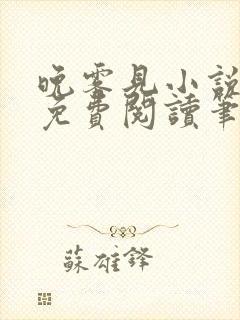 晚零見小說
免費閱讀筆
蘇雄鋒